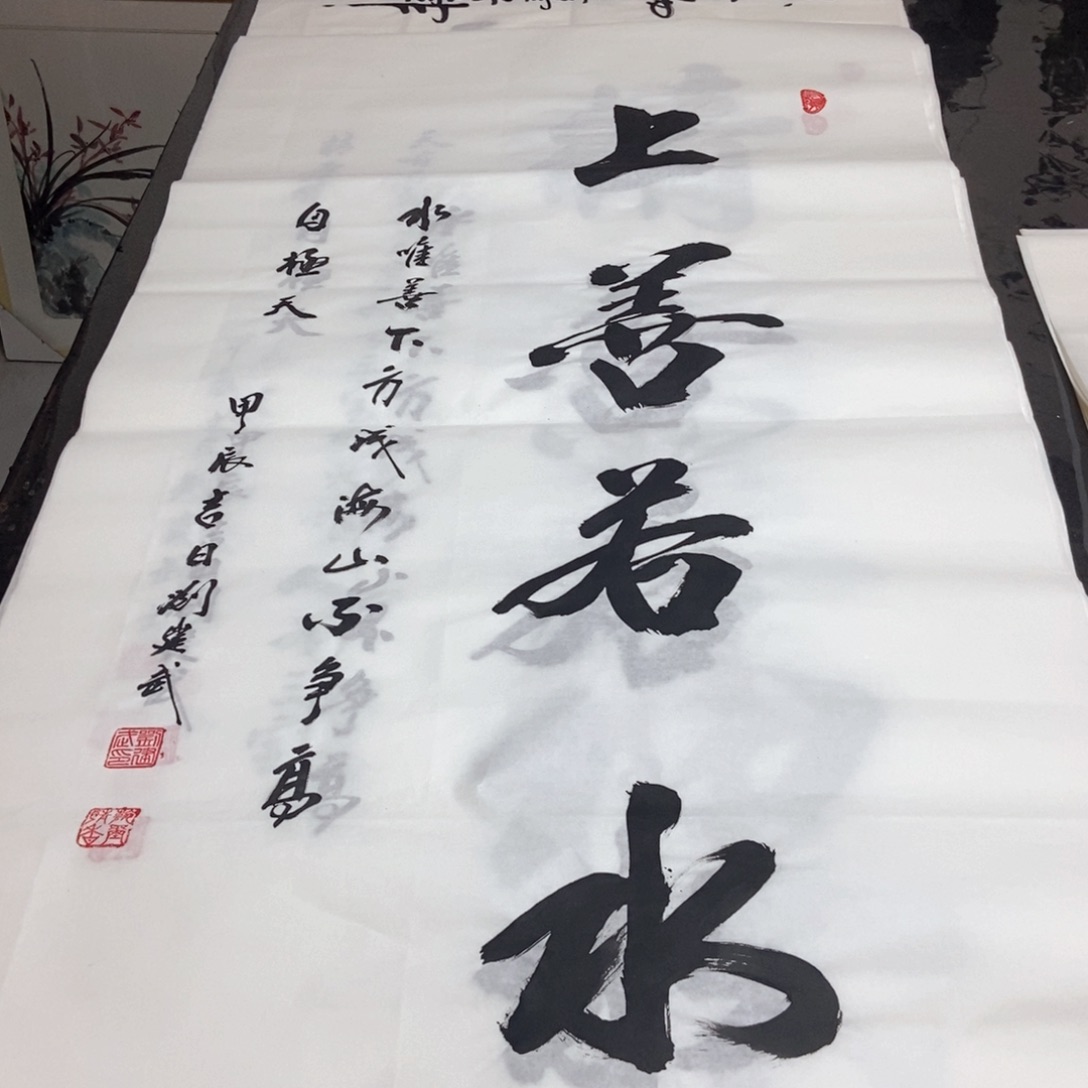 上善若水
水唯善下方成海山不争高
自极天
甲辰吉日刘建武